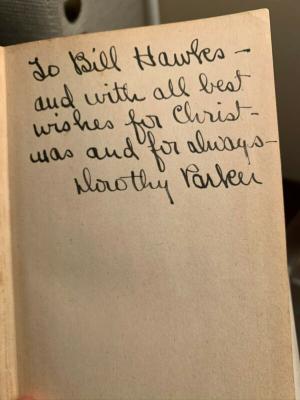 To Bill Hawkes —
and with all best
wishes for Christ-
mas and for always —
Dorothy Parker